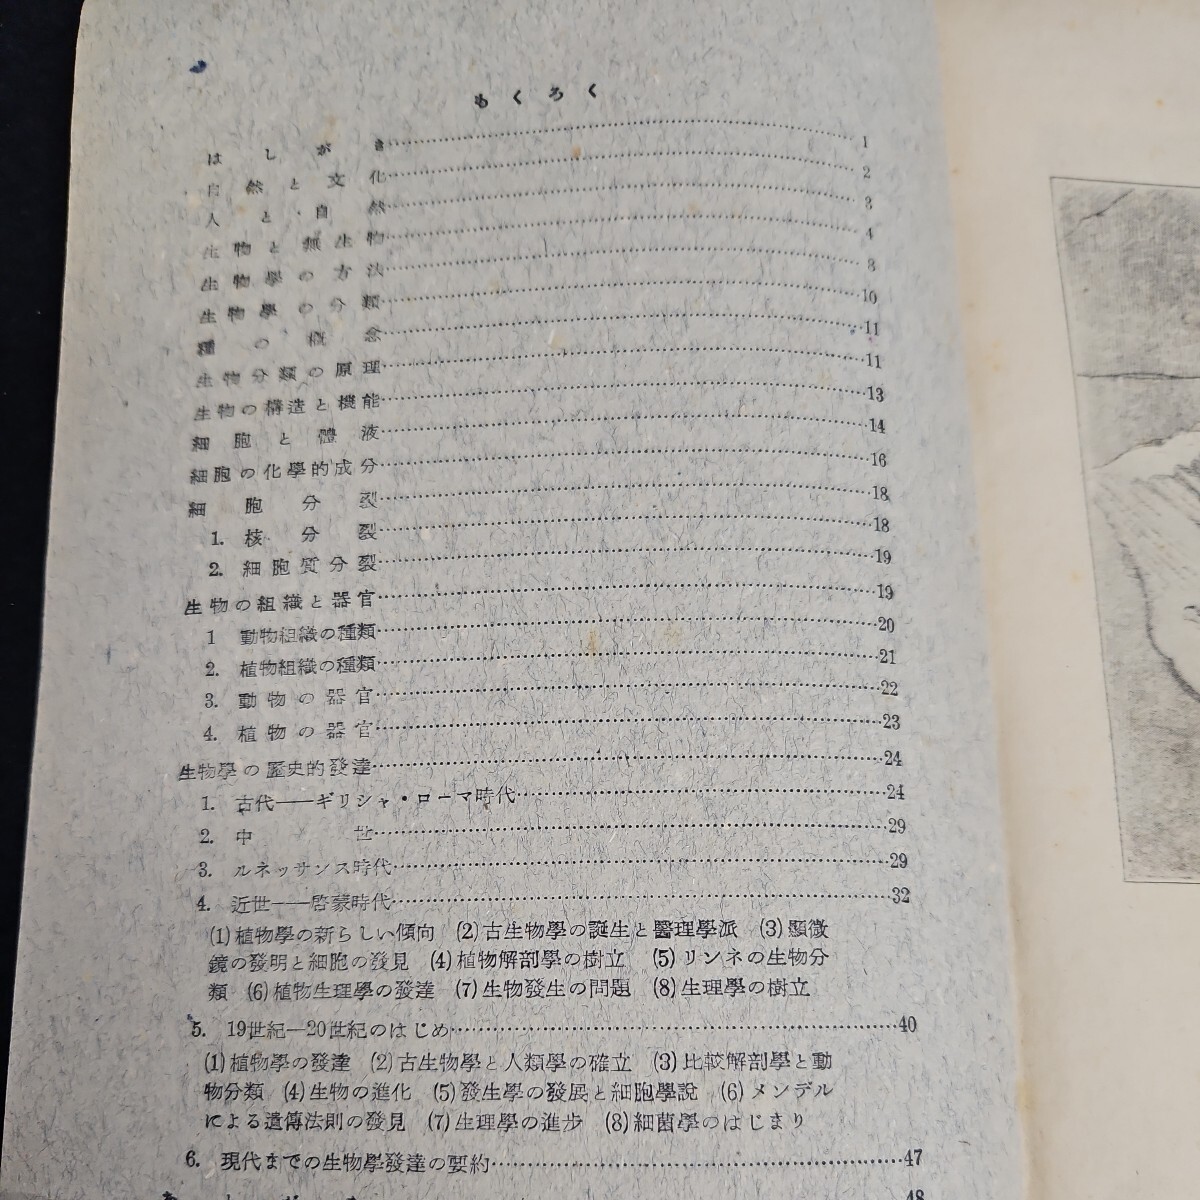 もくろく
はしがき……1
自然と文化……2
人と自然……3
生物と無生物……4
生物學の方法……8
生物學の分類……10
種の概念……11
生物分類の原理……11
生物の構造と機能……13
細胞と體液……14
細胞の化學的成分……16
細胞分裂……18
1. 核分裂……18
2. 細胞質分裂……19
生物の組織と器官……19
1 動物組織の種類……20
2. 植物組織の種類……21
3. 動物の器官……22
4. 植物の器官……23
生物學の歷史的發達……24
1. 古代——ギリシャ・ローマ時代……24
2. 中世……29
3. ルネッサンス時代……29
4. 近世——啓蒙時代……32
(1)植物學の新らしい傾向 (2)古生物學の誕生と醫理學派 (3)顯微
鏡の發明と細胞の發見 (4)植物解剖學の樹立 (5)リンネの生物分
類 (6)植物生理學の發達 (7)生物發生の問題 (8)生理學の樹立
5. 19世紀—20世紀のはじめ……40
(1)植物學の發達 (2)古生物學と人類學の確立 (3)比較解剖學と動
物分類 (4)生物の進化 (5)發生學の發展と細胞學說 (6)メンデル
による遺傳法則の發見 (7)生理學の進步 (8)細菌學のはじまり
6. 現代までの生物學發達の要約……47
48